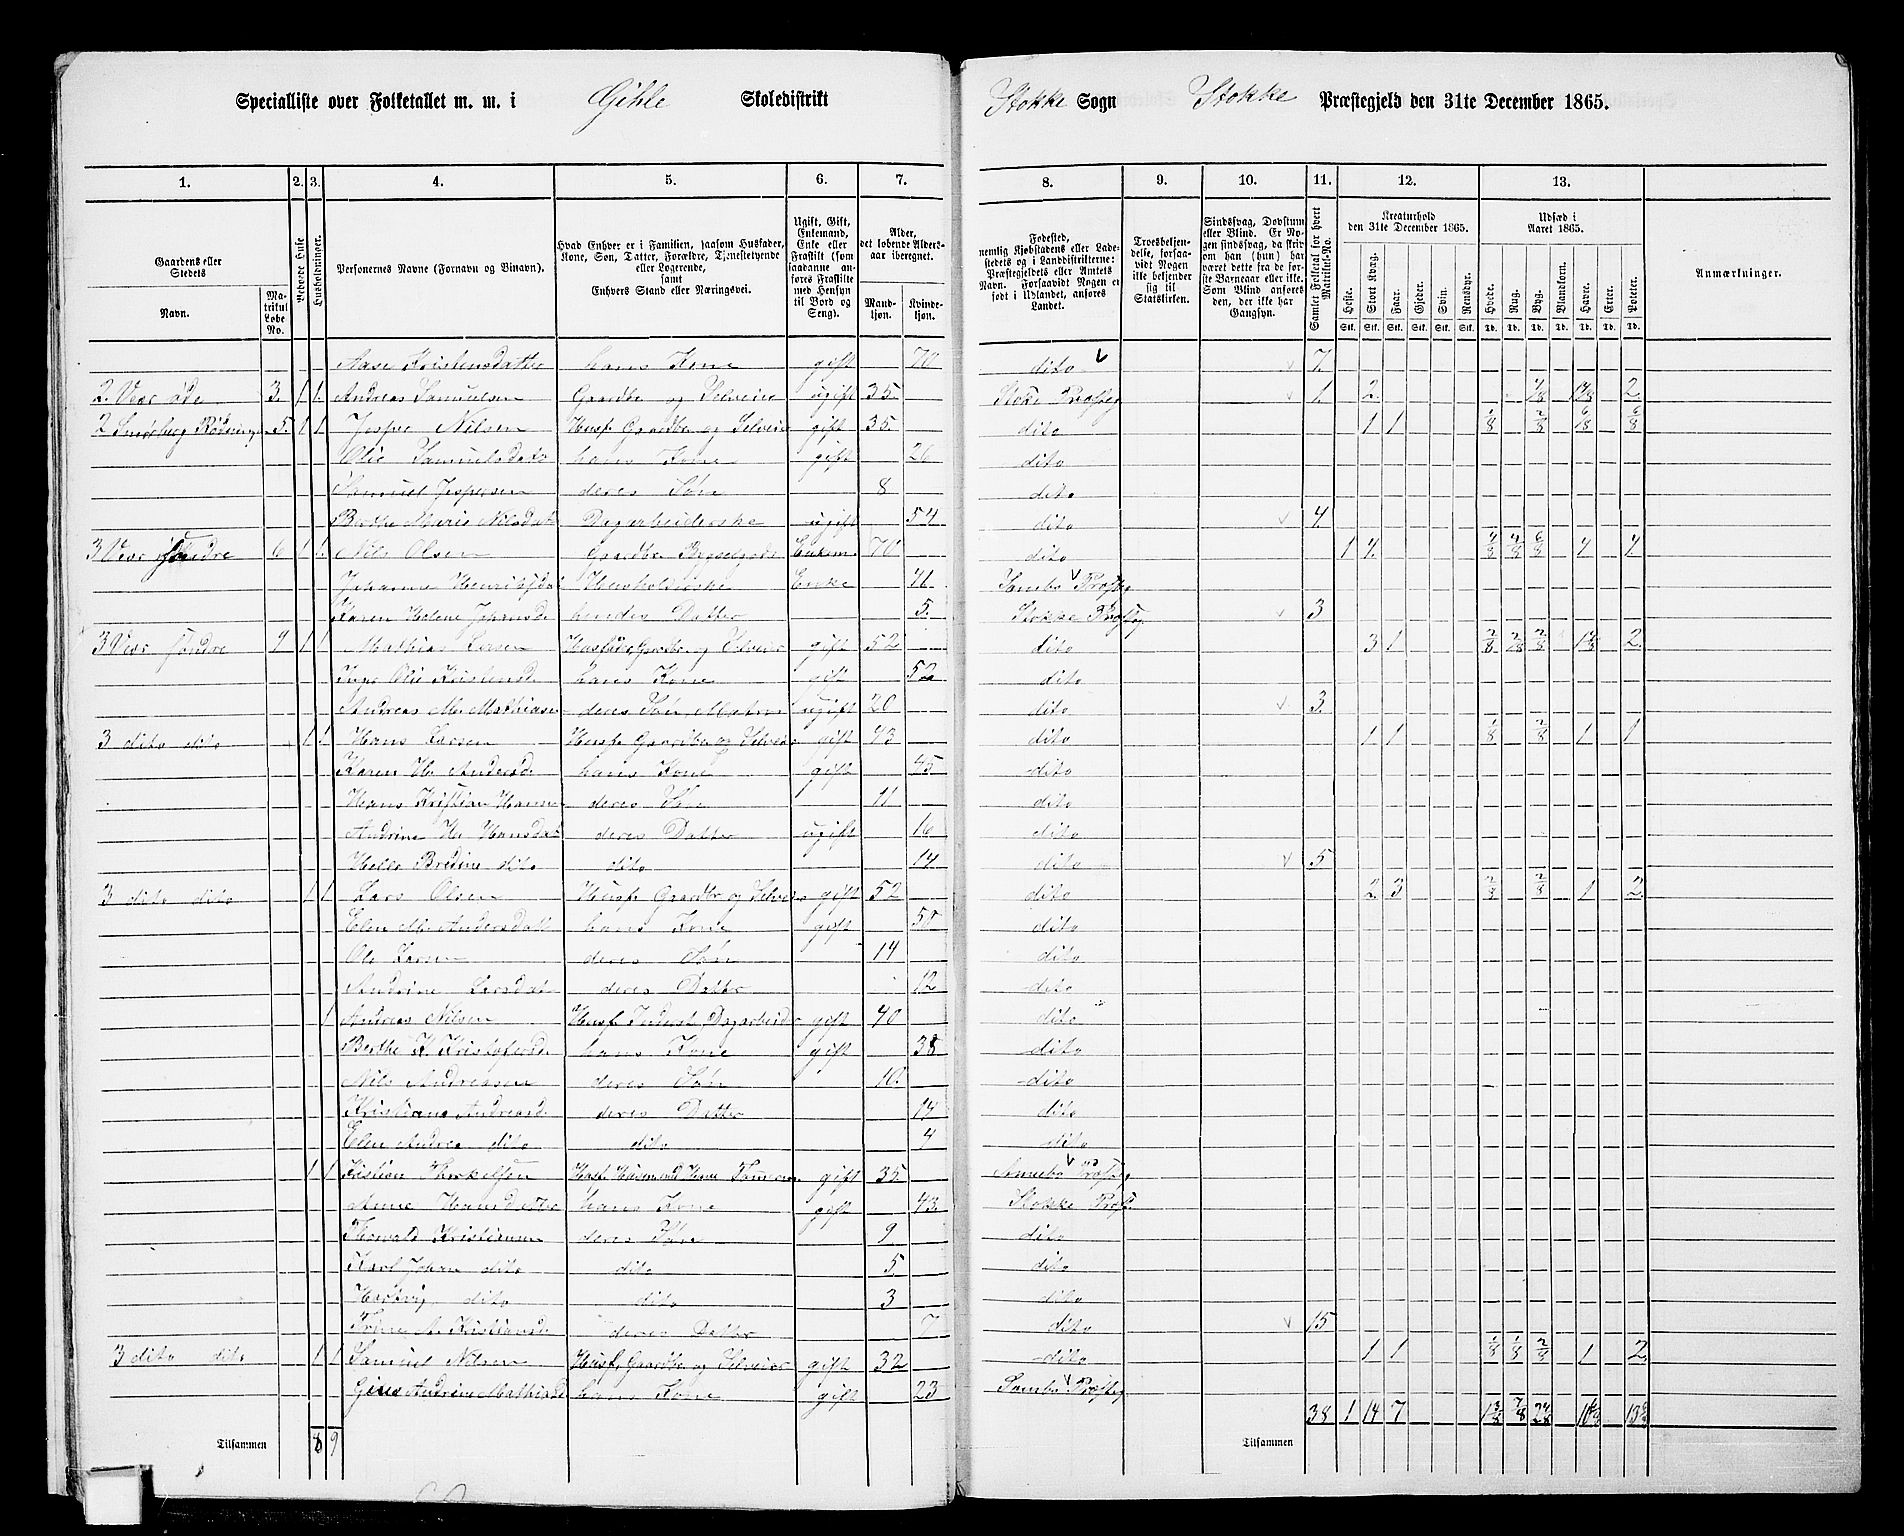 Specialliste over Folketallet m. m. i Gihle Skoledistrikt Stokke Sogn Stokke Præstegjeld den 31te December 1865.
1. 2. 3. 4. 5. 6. 7. 8. 9. 10. 11. 12. 13.
Gaardens eller Stedets
Navn.
Matrikul Løbe No.
Beboede Huse
Husholdninger.
Personernes Navne (Fornavn og Binavn).
Hvad Enhver er i Familien, saasom Husfader, Kone, Søn, Datter, Forældre, Tjenestetyende eller Logerende, samt Enhvers Stand eller Næringsvei.
Ugift, Gift, Enkemand, Enke eller Fraskilt (som saadanne anføres Fraskilte med Hensyn til Bord og Seng).
Alder, det løbende Aldersaar iberegnet.
Mandkjøn. Kvindekjøn.
Fødested, nemlig Kjøbstadens eller Ladestedets og i Landdistrikterne: Præstegjeldets eller Amtets Navn. Forsaavidt Nogen er født i Udlandet, anføres Landet.
Troesbekjendelse, forsaavidt Nogen ikke bekjender sig til Statskirken.
Sindssvag, Døvstum eller Blind. Er Nogen sindssvag, da skriv om han (hun) har været dette fra de første Barneaar eller ikke. Som Blind anføres den, der ikke har Gangsyn.
Samlet Folketal for hvert Matrikul-No.
Kreaturhold den 31te December 1865.
Heste. Stort Kvæg. Faar. Gjeder. Svin. Rensdyr.
Stk. Stk. Stk. Stk. Stk. Stk.
Udsæd i Aaret 1865.
Hvede. Rug. Byg. Blandkorn. Havre. Erter. Poteter.
Td. Td. Td. Td. Td. Td. Td.
Anmærkninger.
Aase Kristensdatter hans Kone gift 70 dito 7.
2. Vear øde 3. 1 1. Andreas Samuelsen Gaardbr og Selveier ugift 35. Stoke Præsteg 1. 2. 2.
5. 1 1. Jesper Nilsen Husf. Gaardbr og Selveier gift 35 dito 1 1
Olie Samuelsdatr hans Kone gift 26 dito
Samuel Jespersen deres Søn 8 dito
Berthe Marie Nilsdat Dagarbeiderske ugift 54 dito 4
3 Vear søndre 6 1 1. Nils Olsen Gaardbr Enkem 70 dito 1 4.
Johanne Henriksdat Husholderske Enke 41. Præsteg
Karen Helene Johansd hendes Datter 5. Stokke Præsteg 3
3 Vear søndre 1 1 Mathias Larsen Husfader Gaardbr og Selveier gift 52 dito 3 1 2.
Inge Olie Kristensd hans Kone gift 52 dito
Andreas M. Mathiase deres Søn Matros ugift 20 dito 3.
3 dito dito 1 1. Hans Larsen Husf. Gaardbr og Selveier gift 43 dito 1 1 1 1
Karen H. Andersd hans Kone gift 45 dito
Hans Kristian Hanse deres Søn 11 dito
Andrine H. Hansdat deres Datter ugift 16 dito
Helle Bredine dito dito 14 dito 5
3 dito dito 1 1 Lars Olsen Husf. Gaardbr og Selveier gift 52 dito 2 3 1 2
Elen M. Andersdatt hans Kone gift 50 dito
Ole Larsen deres Søn 14 dito
Andrine Larsdat deres Datter 12 dito
1 Andreas Nilsen Husf. Inderst Dagarbeider gift 40 dito
Berthe K. Kristofersd hans Kone gift 38 dito
Nils Andreasen deres Søn 10. dito
Kristiane Andreasd deres Datter 14 dito
Elen Andrea dito dito 4 dito
1 1 Kistian Thorkelsen gift 35. Præsteg
Anne Hansdatter hans Kone gift 43. Stokke Præst
Thorvald Kristiansen deres Søn 9 dito
Karl Johan dito dito 5. dito
Hartvig dito dito 3 dito
Trine A. Kristiansd deres Datter 7 dito 15
3 dito dito 1 1 Samuel Nilsen Husf. Gaardbr og Selveier gift 32 dito 1 1 1/8 1/8 2/8 1 2
Andrine Mathiasd hans Kone gift 23 Præsteg
38 1 14 7
Tilsammen 8 9 Tilsammen